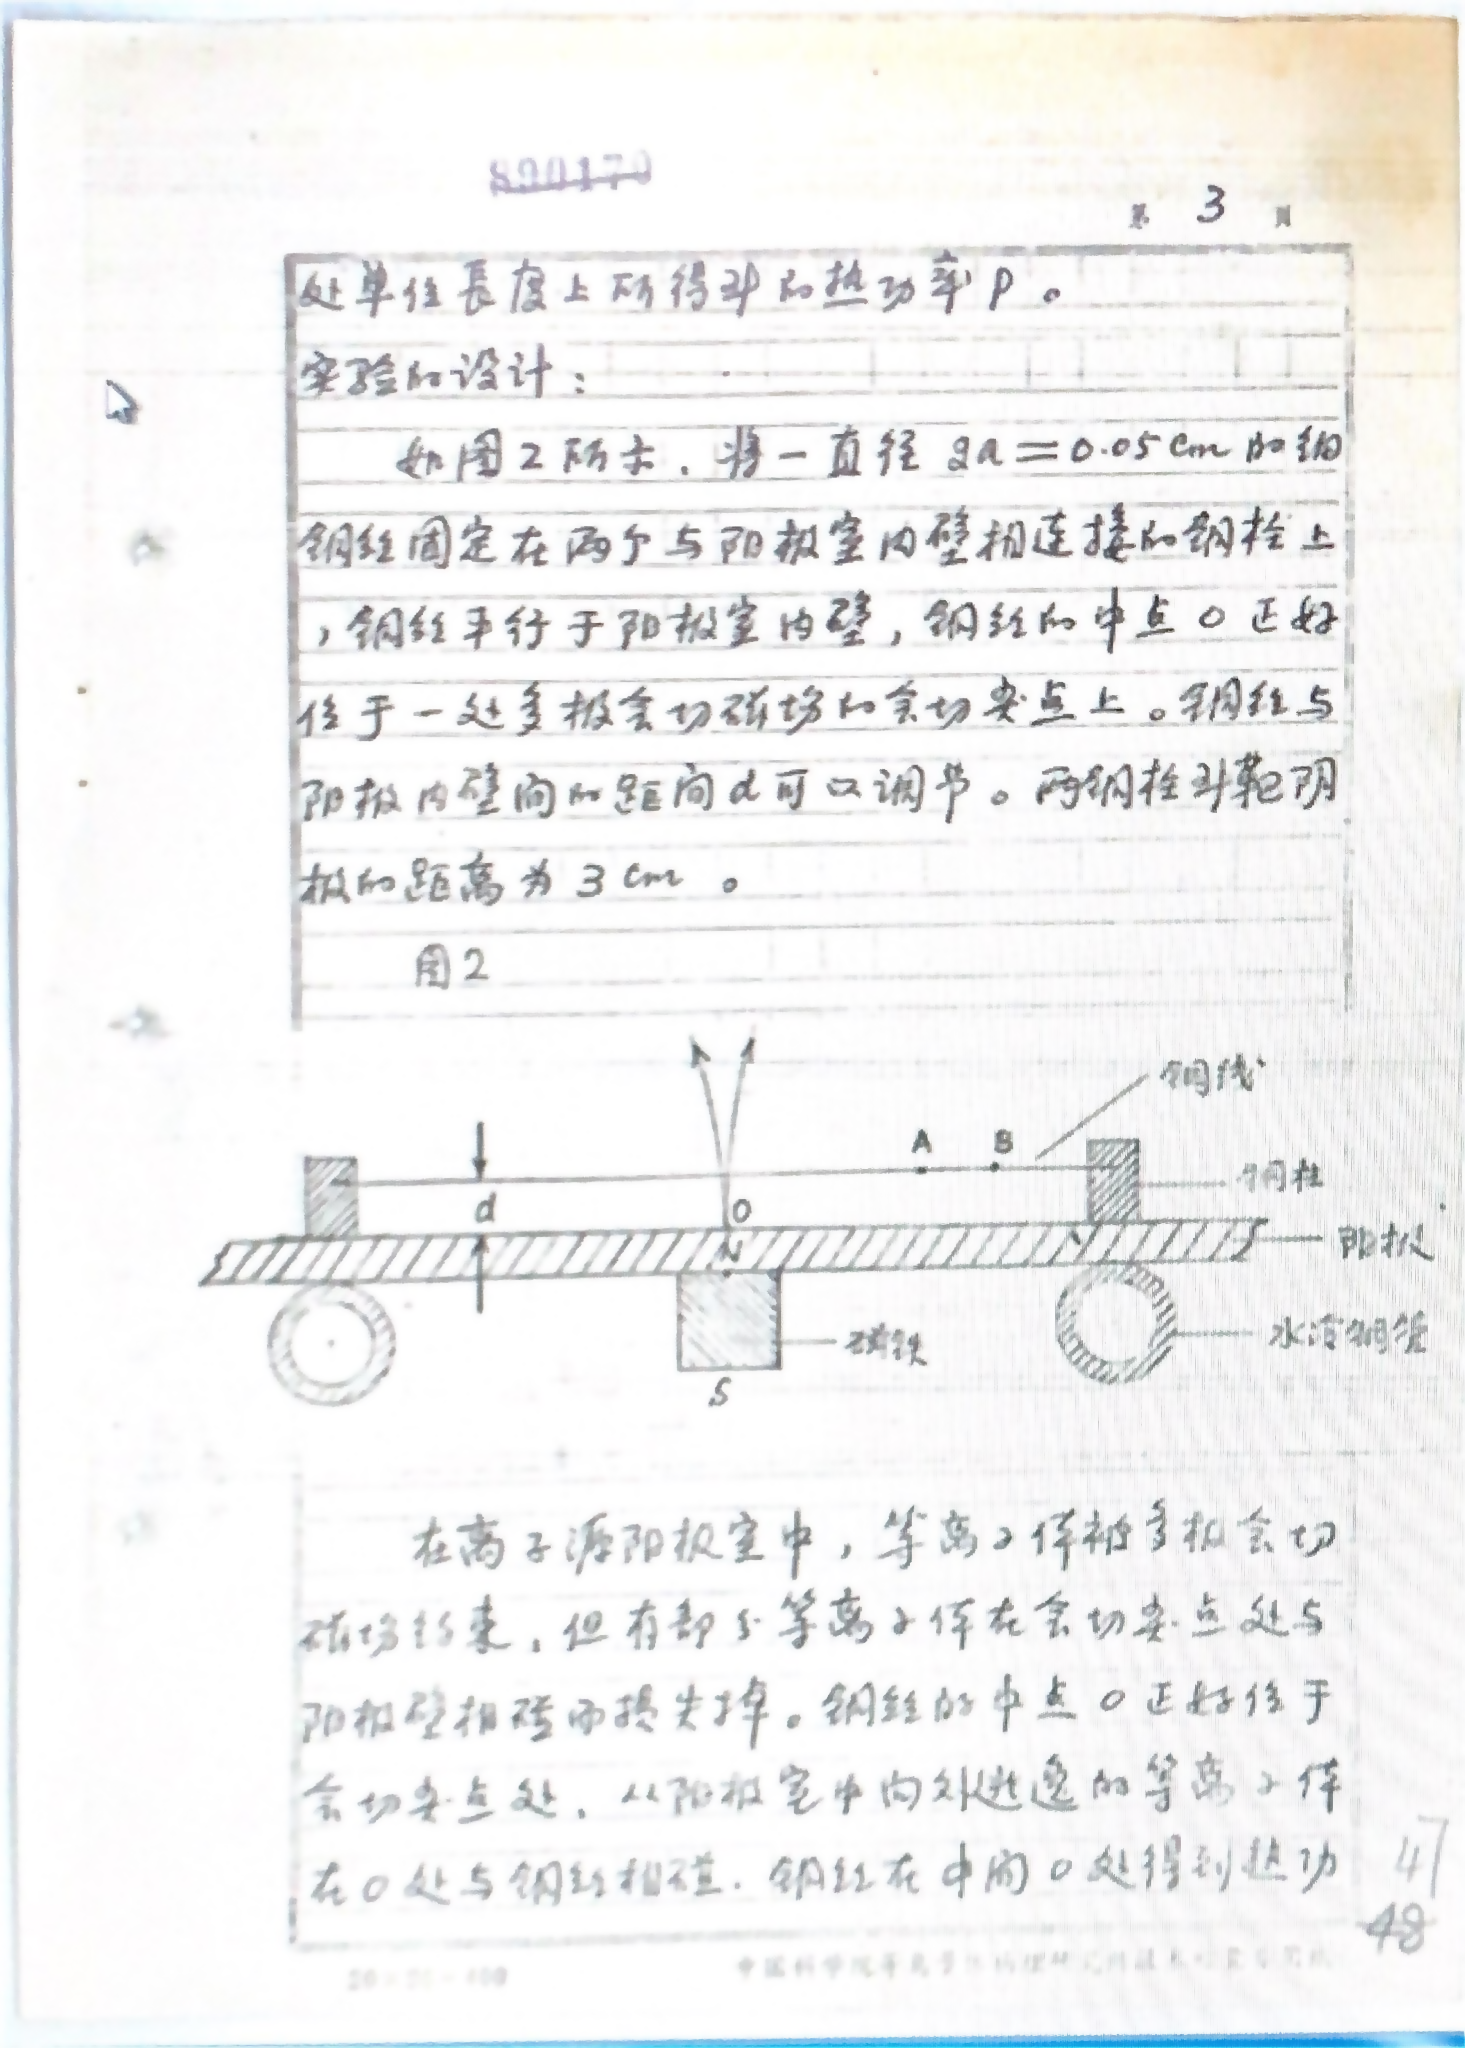 890170
第 3 页
处单位長度上所得到的热功率P。
实验的设计：
如图2所示，将一直径2a=0.05cm的细
铜丝固定在两个与阳极室内壁相连接的铜柱上
，铜丝平行于阳极室内壁，铜丝的中点O正好
位于一处多极会切磁场的会切尖点上。铜丝与
阳极内壁间的距离d可以调节。两铜柱到
极的距离为3cm。
图2
铜线
A B
铜柱
d
O
阳极
N
磁铁
水冷铜管
S
在离子源阳极室中，等离子体被多极会切
磁场约束，但有部分等离子体在会切尖点处与
阳极壁相碰而损失掉。铜丝的中点O正好位于
会切尖点处，从阳极室中向外逃逸的等离子体
在O处与铜丝相碰，铜丝在中间O处得到热功
47
48
20×20=400